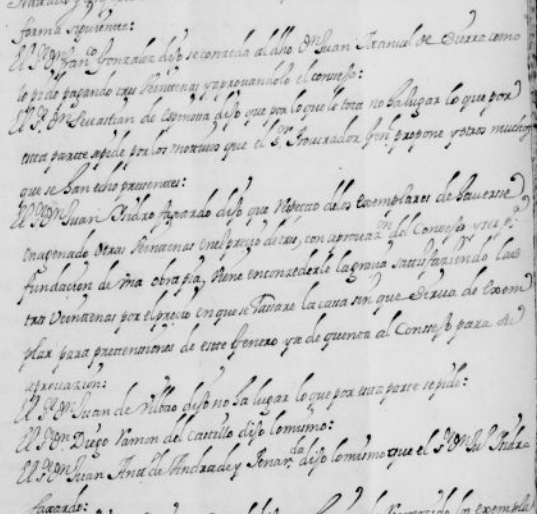 forma siguiente:
El Sr. Dn. Franco. Gonzalez dijo se conceda al dho. Dn. Juan de Sierra como
lo pide pagando tres Veintenas y aprovandolo el consejo:
El Sr. Dn. Sevastian de Espinosa dijo que por lo que le toca no ha lugar lo que por
esta parte se pide por los motivos que el Sr. Procurador Genl. propone y otros muchos
que se han echo presentes:
El Sr. Dn. Juan Isidro Faxardo dijo que respecto de los exemplares de haverse
enagenado otras Veintenas en el precio de tres, con aprovazn. del Consejo y ser pa.
fundacion de una obra pia, viene en concederle la gracia satisfaciendo las
tres Veintenas por el precio en que se tasare la casa sin que sirva de exem
plar para pretensiones de este genero y se de quenta al Consejo para su
aprovazion:
El Sr. Dn. Juan de Vilbao dijo no ha lugar lo que por esta parte se pide:
El Sr. Dn. Diego Ramon del Castillo dijo lo mismo:
El Sr. Dn. Juan Anto. de Andrade y dijo lo mismo que el Sr. Dn. Ju. Isidro
Faxardo:
los exempla